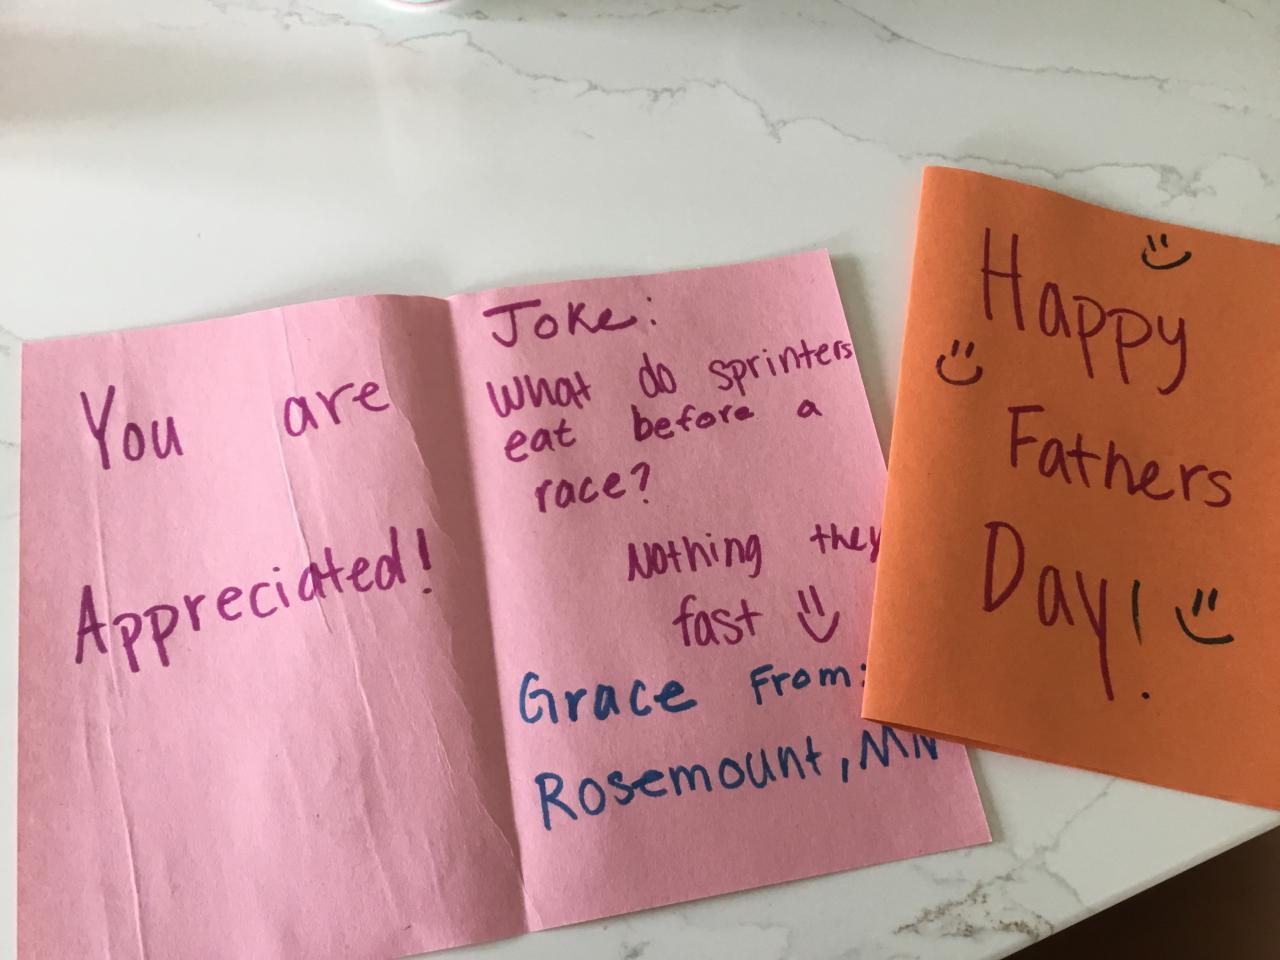 You are
Appreciated!
Joke:
What do sprinters
eat before a
race?
Nothing they
fast
Grace From:
Rosemount, MN
Happy
Fathers
Day!